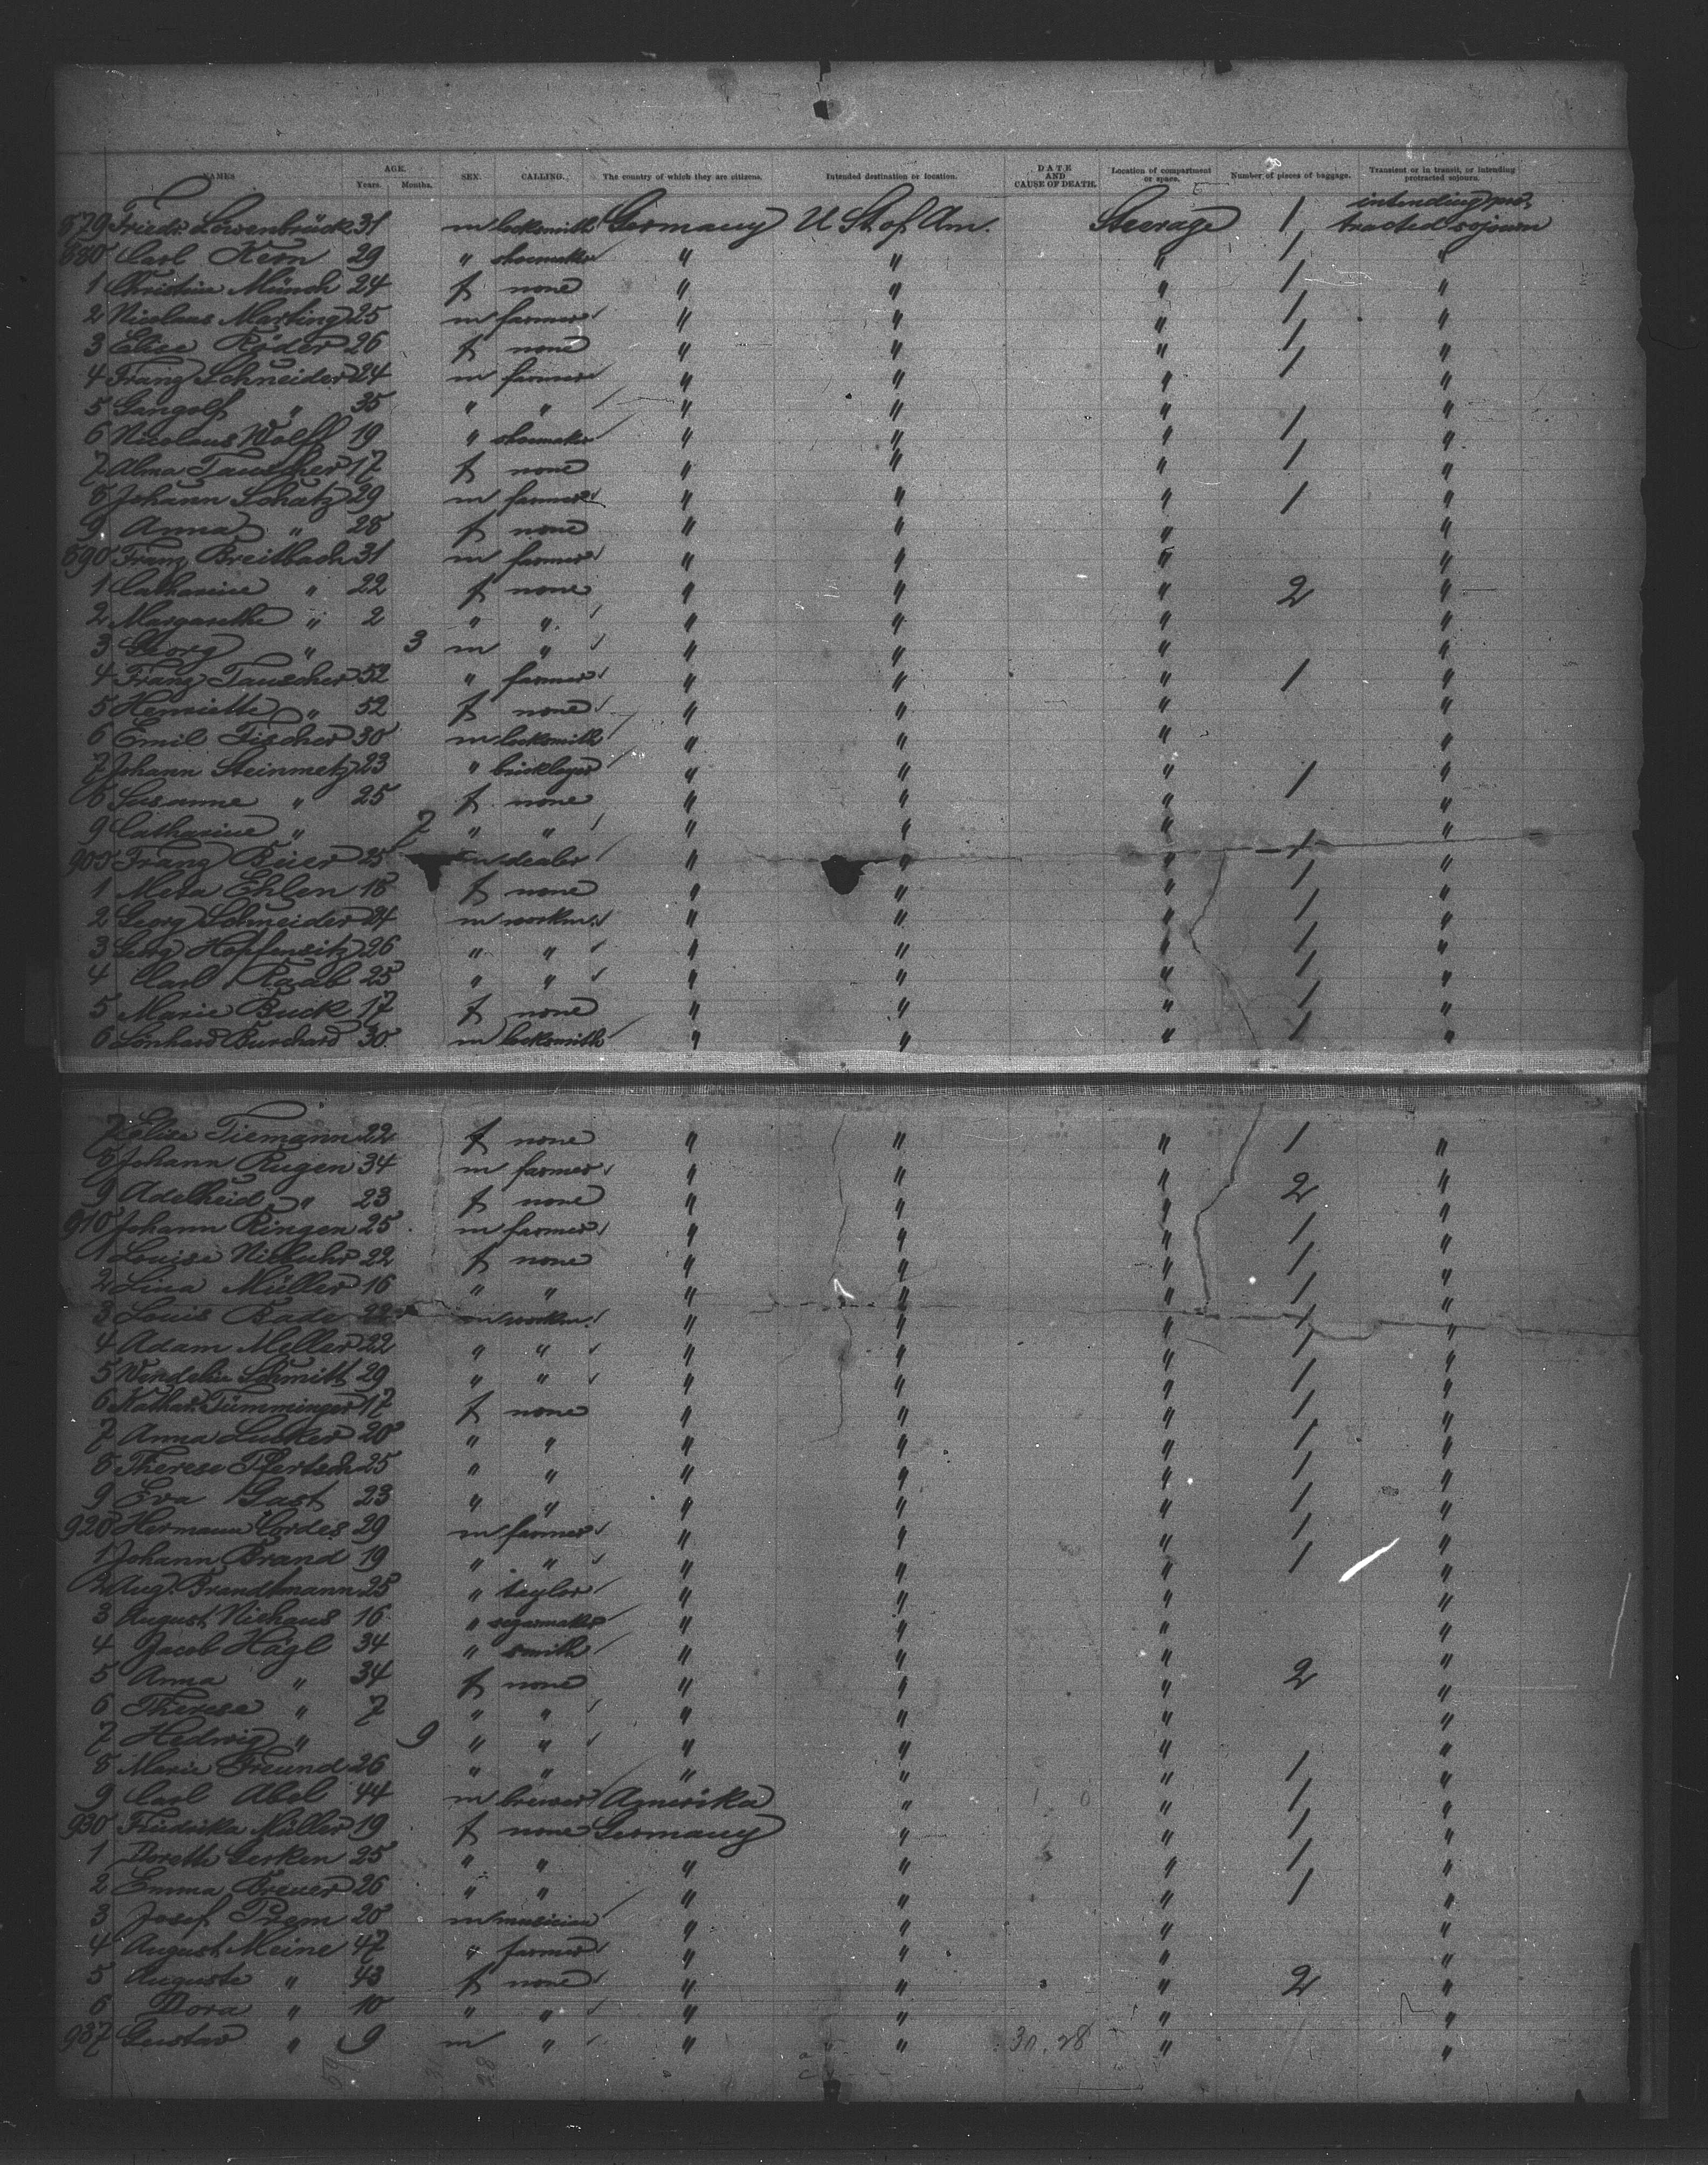 NAMES AGE. Years. Months. SEX. CALLING. The country of which they are citizens. Intended destination or location. DATE AND CAUSE OF DEATH. Location of compartment or space. Number of pieces of baggage. Transient or in transit, or intending protracted sojourn.
879 Friedr. Löwenbrück 31 m locksmith Germany U St of Am. Steerage 1 intending pro- tracted sojourn
880 Carl Kern 29 " shoemaker " " " 1 "
1 Christine Münch 24 f none " " " 1 "
2 Nicolaus Marting 25 m farmer " " " 1 "
3 Elise Röder 26 f none " " " 1 "
4 Franz Schneider 24 m farmer " " " 1 "
5 Gangolf " 35 " " " " " "
6 Nicolaus Wolff 19 " shoemaker " " " 1 "
7 Alma Tauscher 17 f none " " " 1 "
8 Johann Schatz 29 m farmer " " " 1 "
9 Anna " 28 f none " " " "
890 Franz Breitbach 31 m farmer " " " "
1 Catharine " 22 f none " " " 2 "
2 Margarethe " 2 " " " " " "
3 Georg " 3 m " " " " "
4 Franz Tauscher 52 " farmer " " " 1 "
5 Henriette " 52 f none " " " "
6 Emil Fischer 30 m locksmith " " " "
7 Johann Steinmetz 23 " bricklayer " " " 1 "
8 Susanne " 25 f none " " " "
9 Catharine " 7 " " " " " "
900 Franz Beier 25 m dealer " " " 1 "
1 Meta Ehlen 18 f none " " " 1 "
2 Georg Schneider 24 m workm. " " " 1 "
3 Georg Hopfensitz 26 " " " " " 1 "
4 Carl Raab 25 " " " " " 1 "
5 Marie Buck 17 f none " " " 1 "
6 Lenhard Burchard 30 m locksmith " " " 1 "
7 Elise Tiemann 22 f none " " " 1 "
8 Johann Rugen 34 m farmer " " " "
9 Adelheid " 23 f none " " " 2 "
910 Johann Ringen 25 m farmer " " " 1 "
1 Louise Niebuhr 22 f none " " " 1 "
2 Lina Müller 16 " " " " " 1 "
3 Louis Bade 22 m workm. " " " 1 "
4 Adam Meller 22 " " " " " 1 "
5 Wendelin Schmitt 29 " " " " " 1 "
6 Kathar. Tümminger 17 f none " " " 1 "
7 Anna Lucker 20 " " " " " 1 "
8 Therese Pfertsch 25 " " " " " 1 "
9 Eva Gast 23 " " " " " 1 "
920 Hermann Cordes 29 m farmer " " " 1 "
1 Johann Brand 19 " " " " " 1 "
2 Aug. Brandtmann 25 " taylor " " " "
3 August Niehaus 16 " segarmaker " " " "
4 Jacob Hägl 34 " smith " " " "
5 Anna " 34 f none " " " 2 "
6 Therese " 7 " " " " " "
7 Hedwig " 9 " " " " " "
8 Marie Freund 26 " " " " " 1 "
9 Carl Abel 44 m brewer Amerika " " 1 "
930 Friedrika Müller 19 f none Germany " " 1 "
1 Dorette Gerken 25 " " " " " 1 "
2 Emma Breuer 26 " " " " " 1 "
3 Josef Prem 20 m musician " " " "
4 August Meine 47 " farmer " " " "
5 Auguste " 43 f none " " " 2 "
6 Dora " 10 " " " " " "
937 Gustav " 9 m " " " 30.28 " "